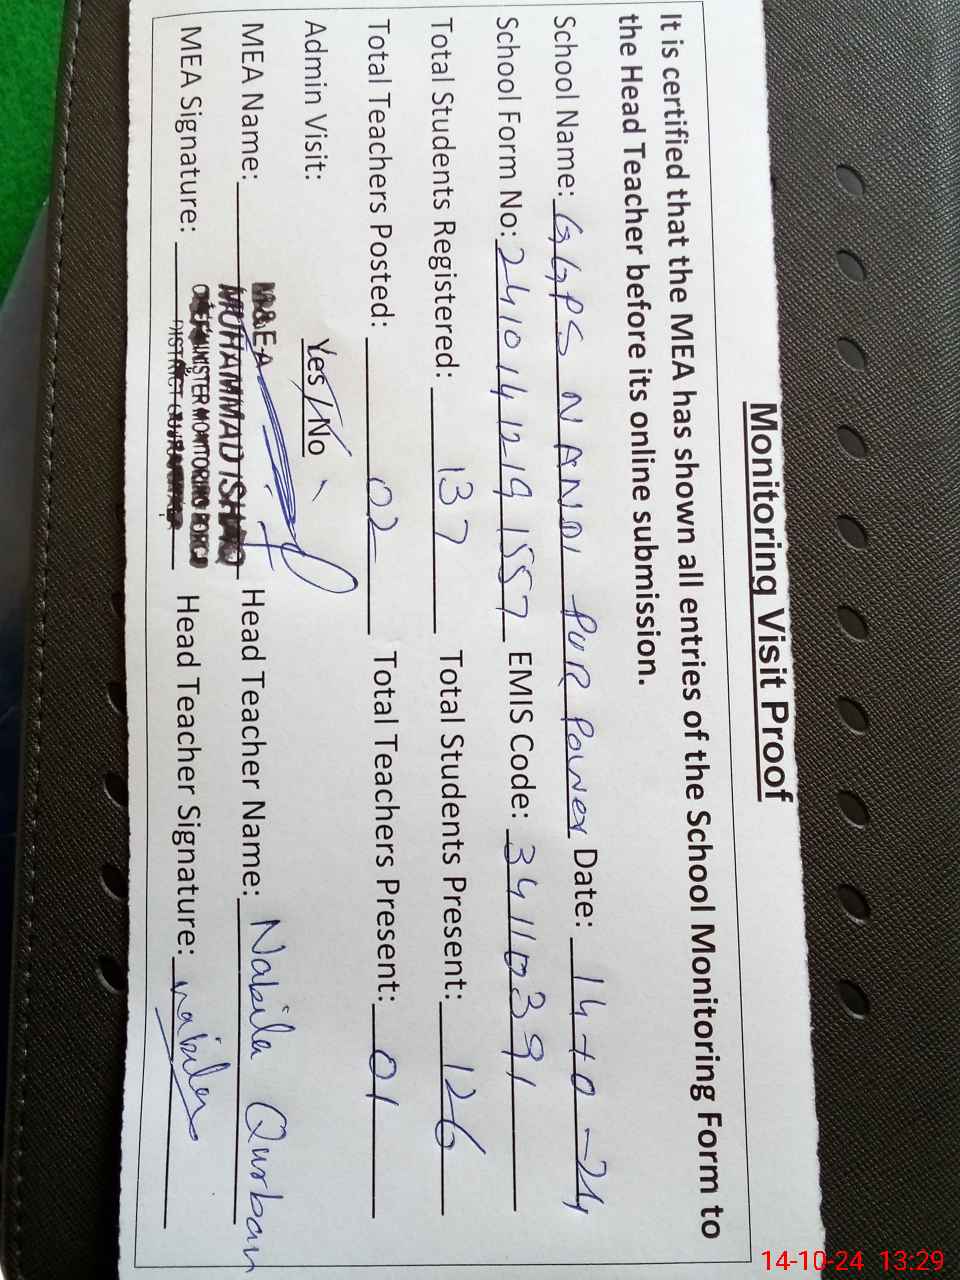 Monitoring Visit Proof
It is certified that the MEA has shown all entries of the School Monitoring Form to
the Head Teacher before its online submission.
School Name: GGPS NANDI PUR Power Date: 14-10-24
School Form No: 24101412191557 EMIS Code: 34110391
Total Students Registered: 137 Total Students Present: 126
Total Teachers Posted: 02 Total Teachers Present: 01
Admin Visit: Yes/No
M&EA
MEA Name: MUHAMMAD Head Teacher Name: Nabila Qurban
MINISTER MONITORING FORCE
MEA Signature: DISTRICT Head Teacher Signature: nabila
14-10-24 13:29